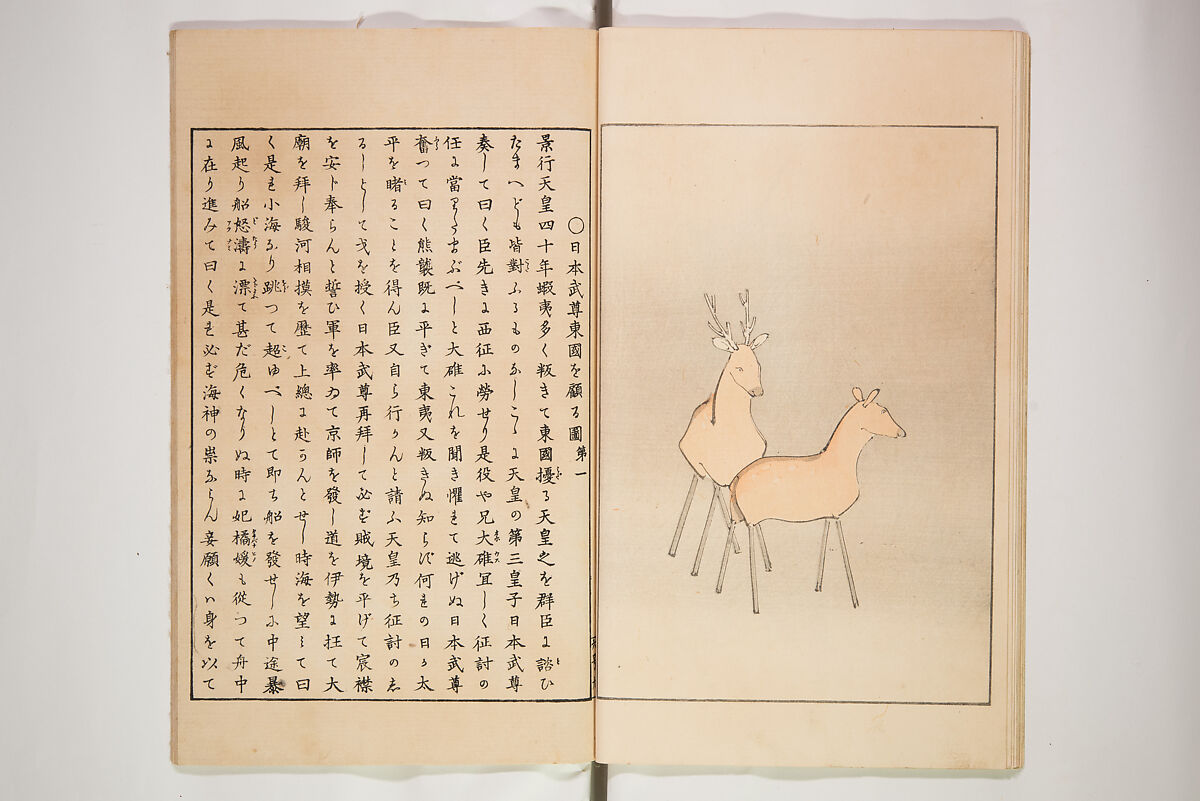 〇日本武尊東國を顧る圖第一
景行天皇四十年蝦夷多く叛きて東國擾る天皇之を群臣に諮ひ
たまへども皆對ふるものなしこゝに天皇の第三皇子日本武尊
奏して曰く臣先きに西征に勞せり是役や兄大碓宜しく征討の
任に當るべしと大碓これを聞き懼れて逃げぬ日本武尊
奮つて曰く熊襲既に平ぎて東夷又叛きぬ知らず何れの日か太
平を睹ることを得ん臣又自ら行かんと請ふ天皇乃ち征討の
るしとして戈を授く日本武尊再拜して必ず賊境を平げて宸襟
を安ト奉らんと誓ひ軍を率ゐて京師を發し道を伊勢に抂て大
廟を拜し駿河相摸を歷て上總に赴かんとせし時海を望みて曰
く是れ小海なり跳つて超ゆべしとて即ち船を發せしに中途暴
風起り船怒濤に漂て甚だ危くなりぬ時に妃橘媛も從つて舟中
に在り進みて曰く是れ必ず海神の祟ならん妾願くハ身を以て